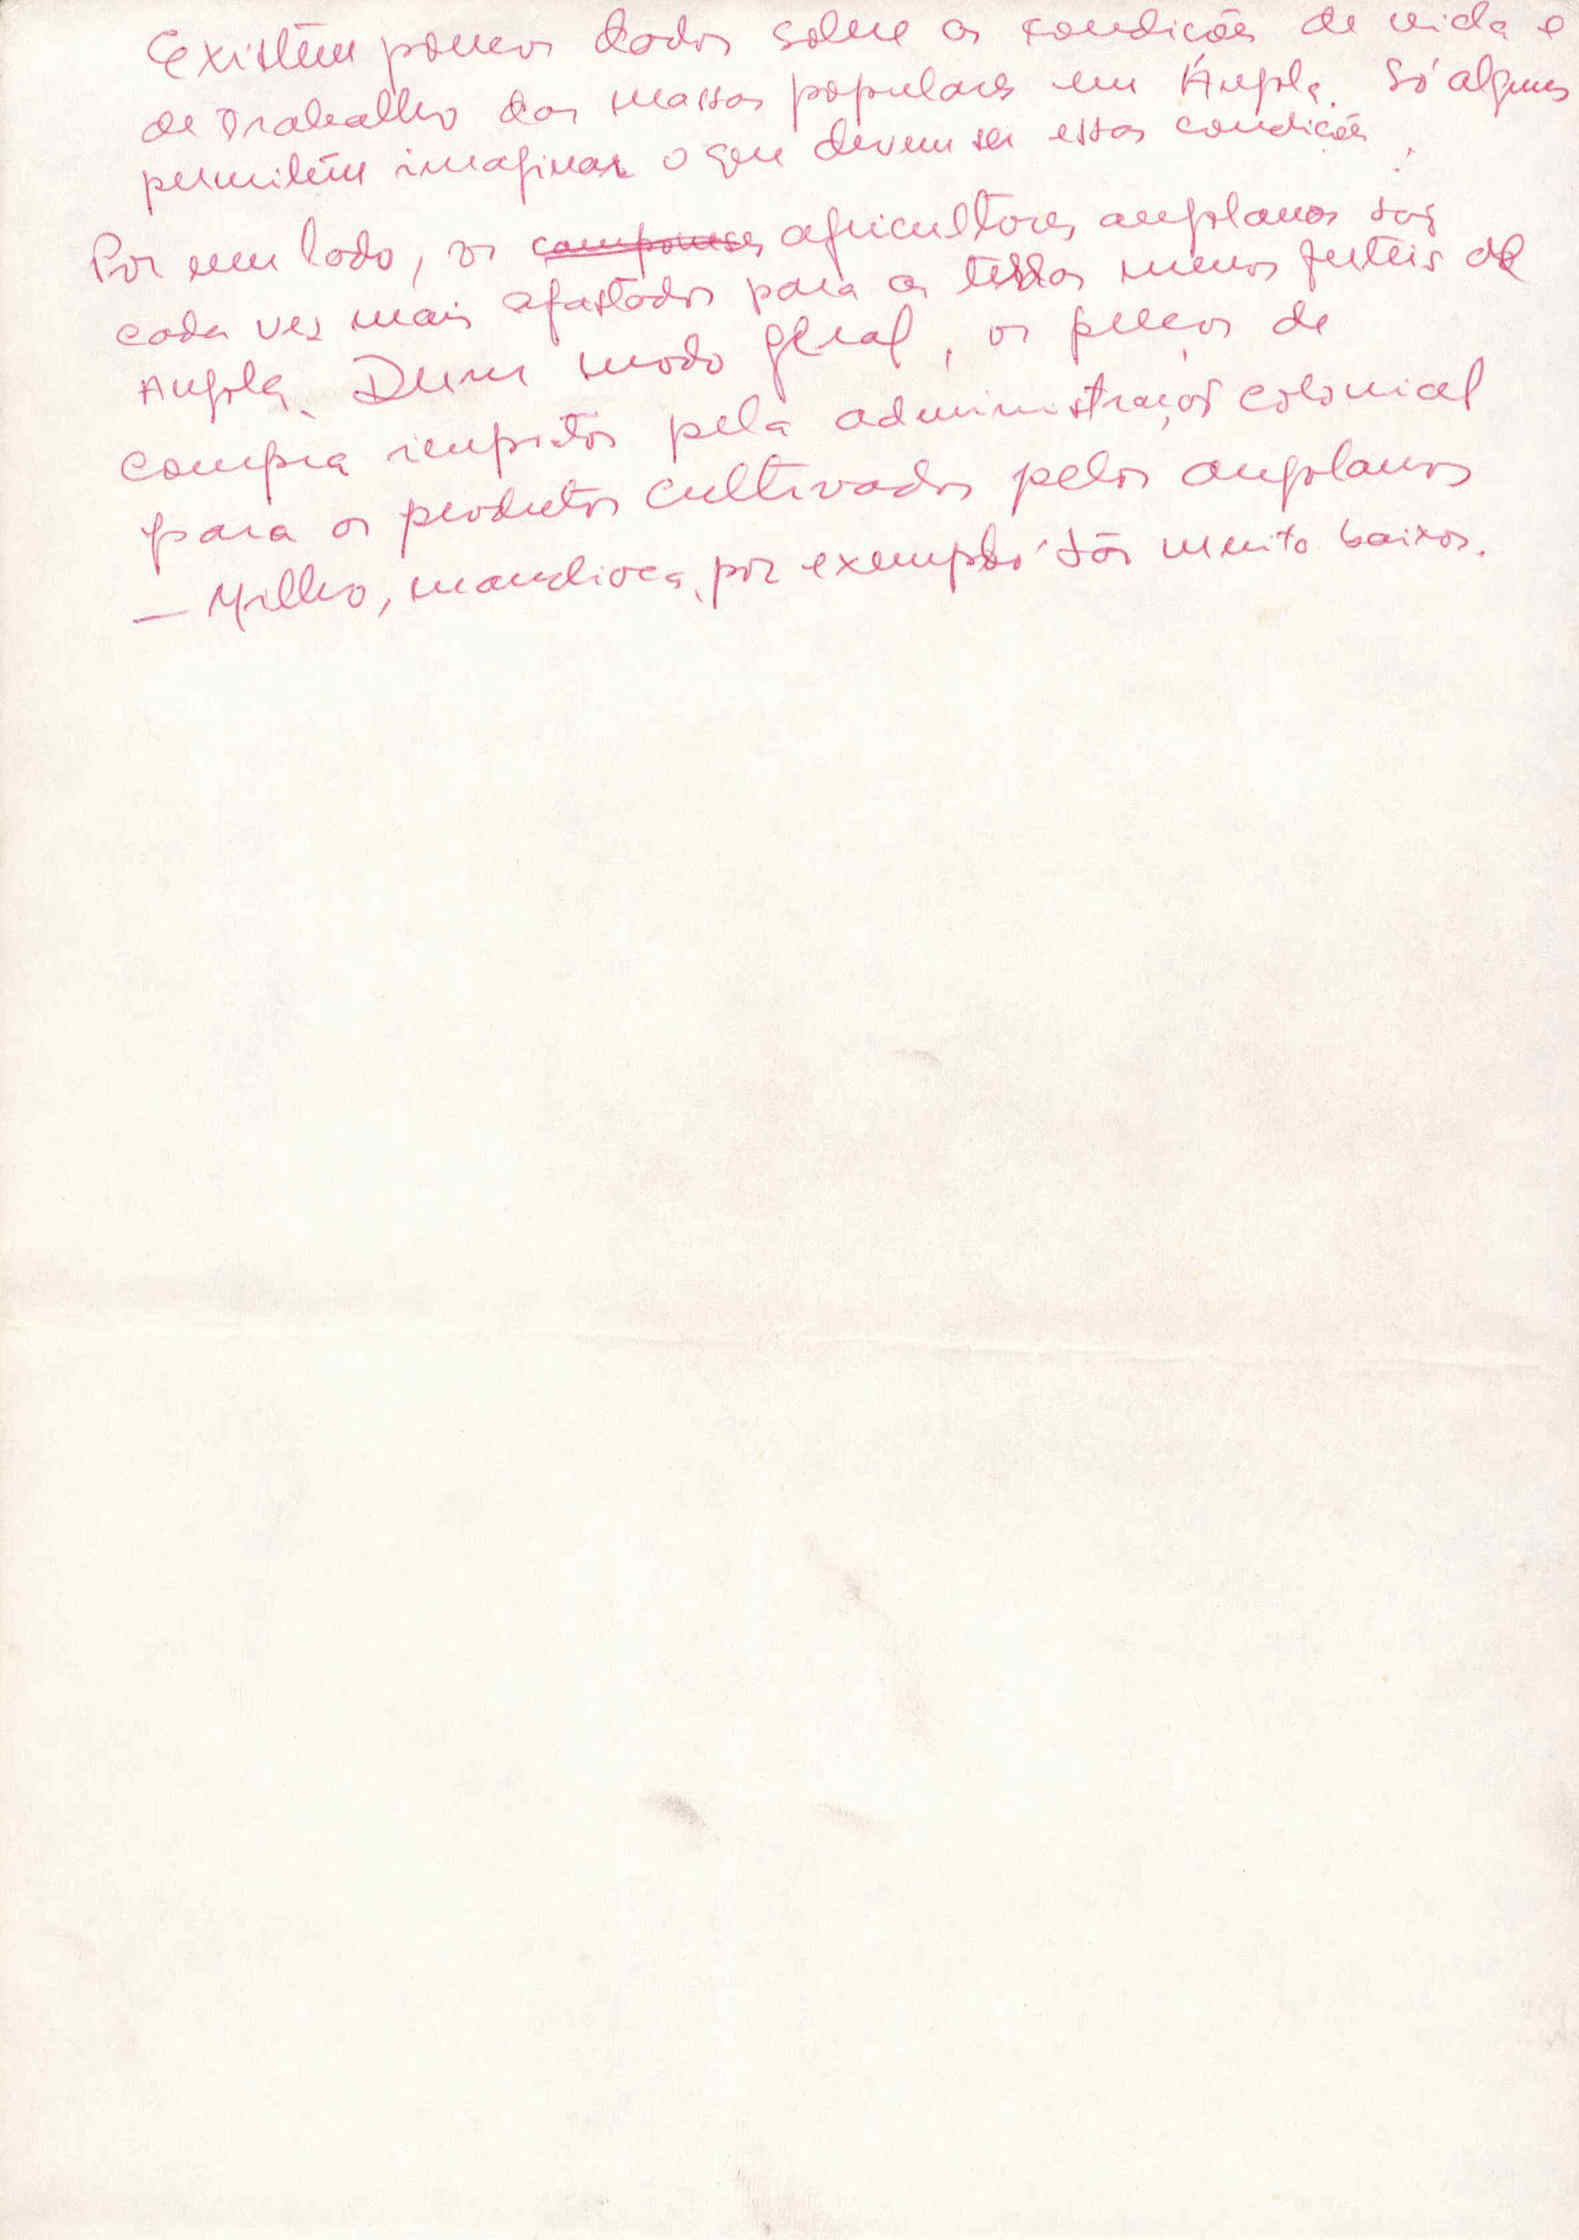 Existem poucos dados sobre as condições de vida e
de trabalho das massas populares em Angola. Só alguns
permitem imaginar o que devem ser essas condições.
Por um lado, os camponeses agricultores angolanos são
cada vez mais afastados para as terras menos férteis de
Angola. Dum modo geral, os preços de
compra impostos pela administração colonial
para os produtos cultivados pelos angolanos
— Milho, mandioca, por exemplo são muito baixos.